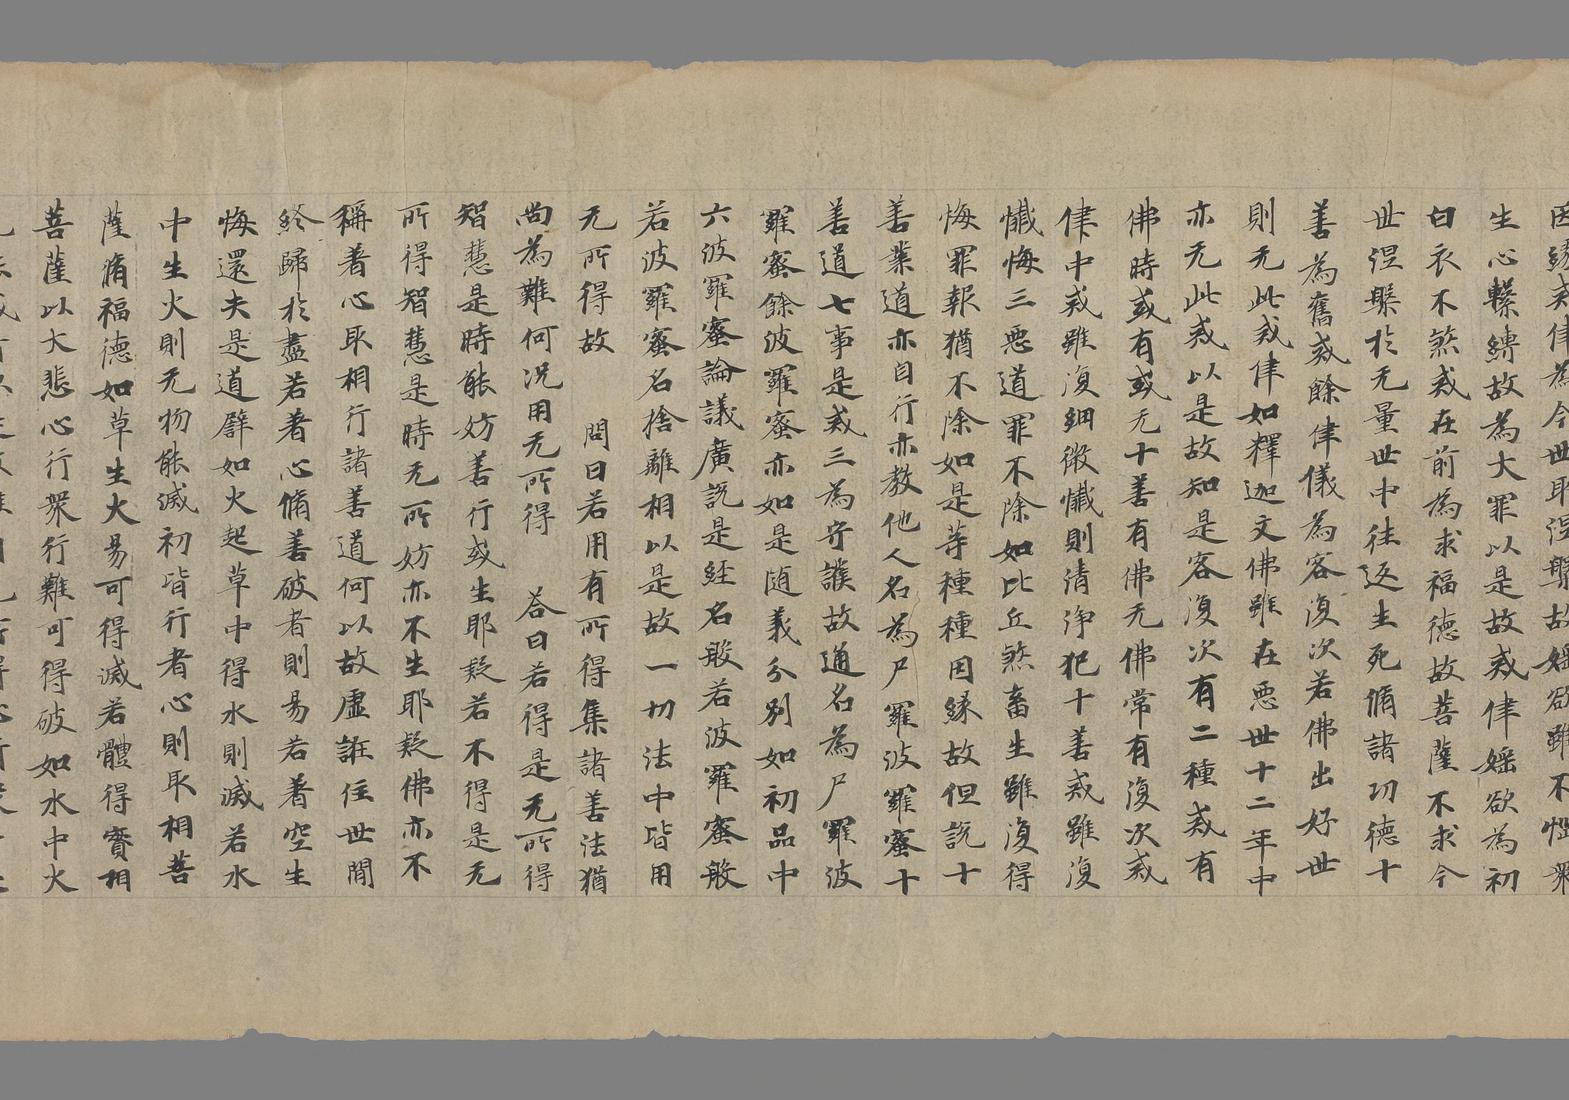 因緣戒律為今世取涅槃故婬欲雖不惱衆
生心繫縛故為大罪以是故戒律婬欲為初
白衣不煞戒在前為求福德故菩薩不求今
世涅槃於无量世中往返生死脩諸功德十
善為舊戒餘律儀為客復次若佛出好世
則无此戒律如釋迦文佛雖在惡世十二年中
亦无此戒以是故知是客復次有二種戒有
佛時或有或无十善有佛无佛常有復次戒
律中戒雖復細微懺則清淨犯十善戒雖復
懺悔三惡道罪不除如比丘煞畜生雖復得
悔罪報猶不除如是等種種因緣故但說十
善業道亦自行亦教他人名為尸羅波羅蜜十
善道七事是戒三為守護故通名為尸羅波
羅蜜餘波羅蜜亦如是随義分別如初品中
六波羅蜜論議廣說是經名般若波羅蜜般
若波羅蜜名捨離相以是故一切法中皆用
无所得故　問曰若用有所得集諸善法猶
尚為難何況用无所得　荅曰若得是无所得
智慧是時能妨善行或生耶疑若不得是无
所得智慧是時无所妨亦不生耶疑佛亦不
稱著心取相行諸善道何以故虛誑住世間
終歸於盡若著心脩善破者則易若著空生
悔還失是道譬如火起草中得水則滅若水
中生火則无物能滅初皆行者心則取相菩
薩脩福德如草生火易可得滅若體得實相
菩薩以大悲心行衆行難可得破如水中火